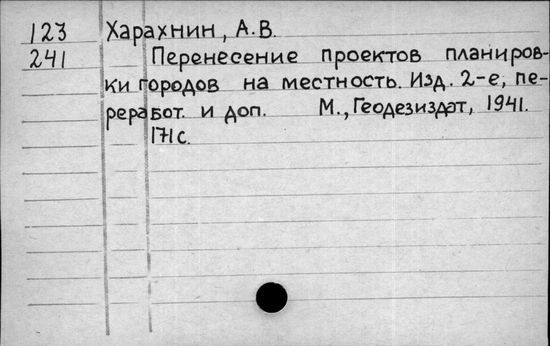 123 Харахнин, А.В.
241 Перенесение проектов планиров-
ки городов на местность. Изд. 2-е, пе-
реработ. и доп. М., Геодезиздат, 1941.
171с.